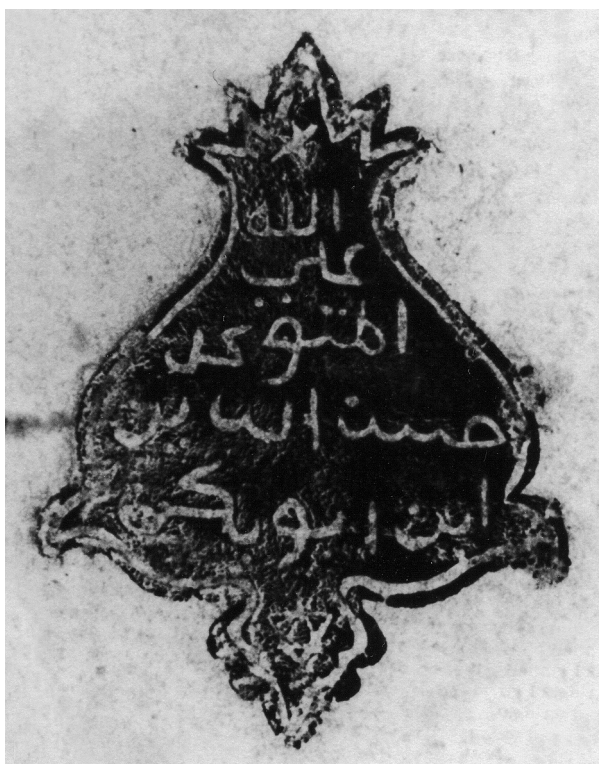 الله
علي
المتوكل
حسن الدين
ابن ابو بكر